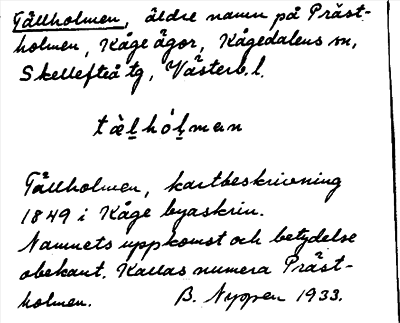 Tållholmen, äldre namn på Präst-
holmen, Kåge ägor, Kågedalens sn,
Skellefteå tg, Västerb. l.
tålhólman
Tållholmen, kartbeskrivning
1849 i Kåge byaskrin.
Namnets uppkomst och betydelse
obekant. Kallas numera Präst-
holmen. B. Nyppen 1933.